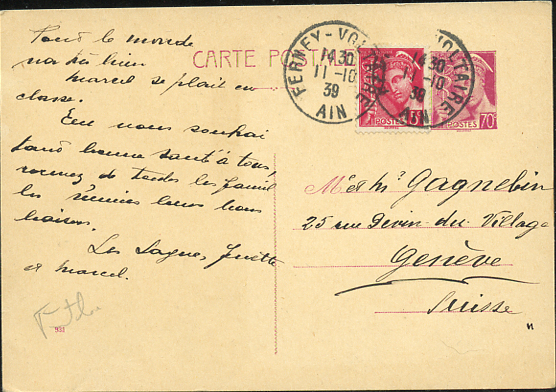 CARTE POSTALE
FERNEY-VOLTAIRE
14 30
11-10
39
AIN
VOLTAIRE
14 30
10
39
AIN
POSTES
POSTES
70
Tout le monde
va très bien
Marcel se plait en
classe.
En nous
bonne santé à tous
recevez de toutes les
les réunies leurs bons
baisers.
Les Jagues,
et Marcel.
Mr et Me Gagnebin
25 rue Devin-du-Village
Genève
Suisse